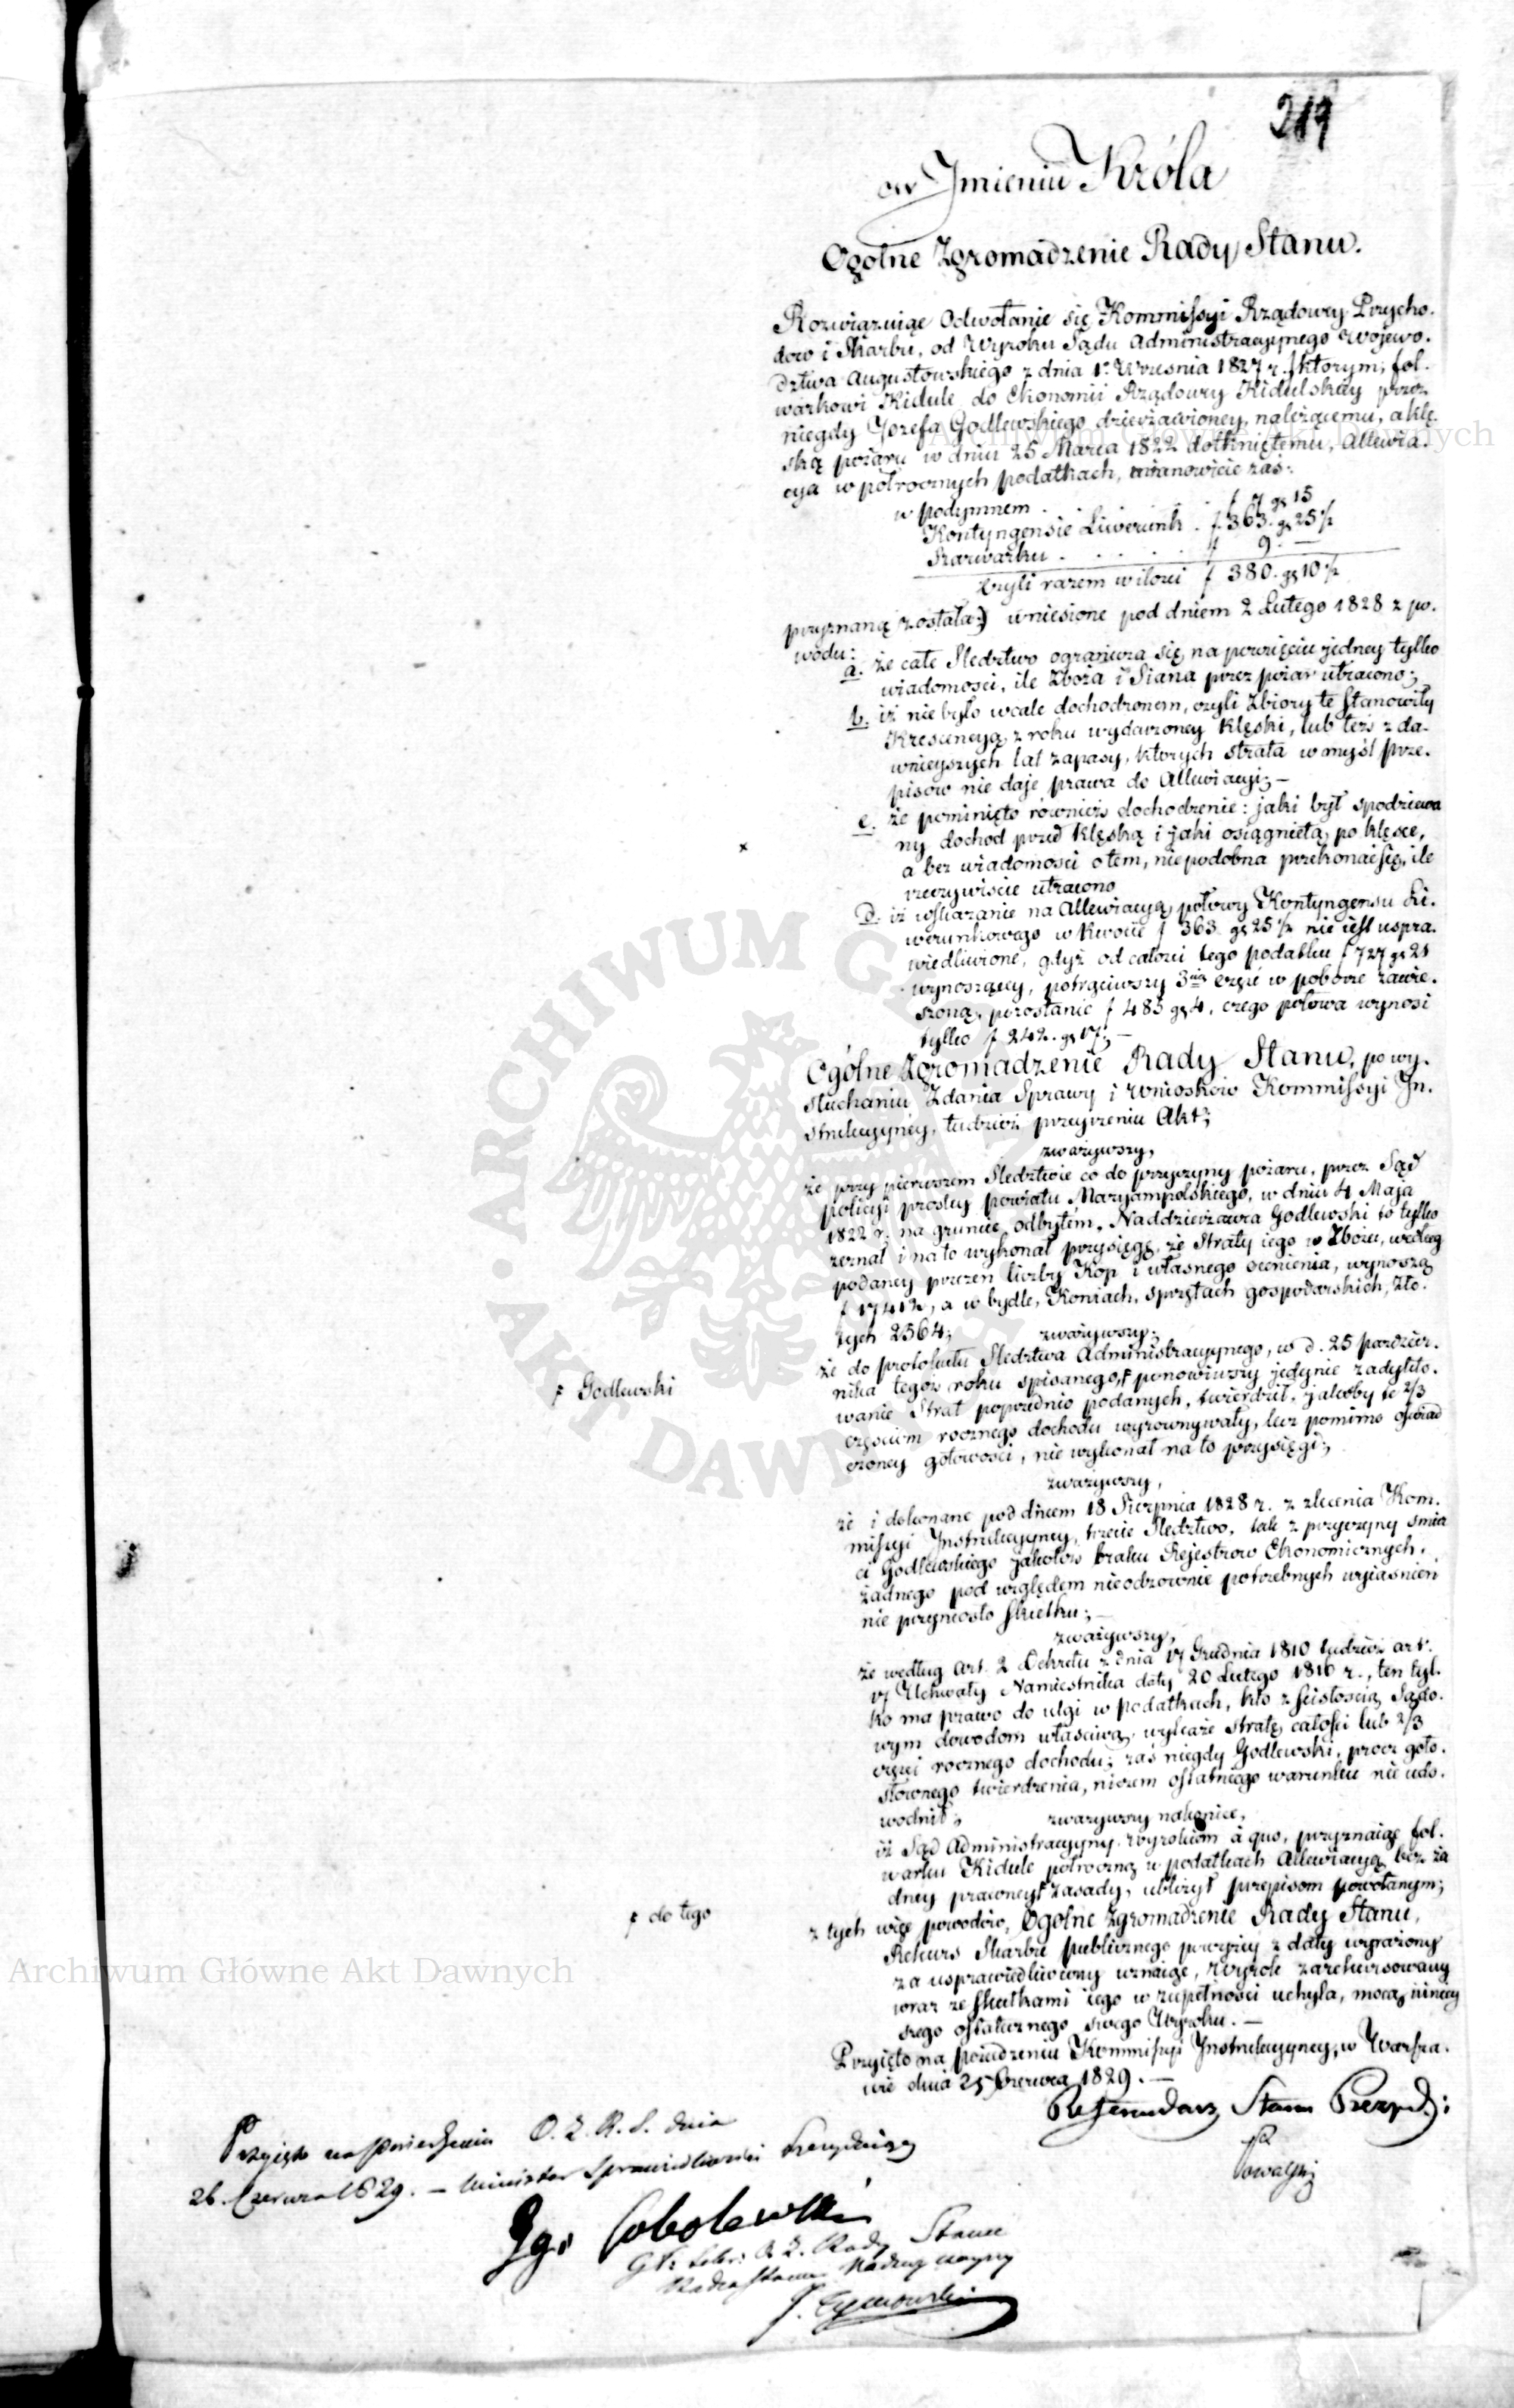 219
w Jmieniu Króla
Ogólne Zgromadzenie Rady Stanu.
Rozwiązuiąc Odwołanie się Kommissyi Rządowey Przycho-
dow i Skarbu, od Wyroku Sądu Administracyynego Wojewo-
dztwa Augustowskiego z dnia 1º Września 1827 r. (którym, fol-
warkowi Kidule do Ekonomii Rządowey Kidulskiey przez
niegdy Jozefa Godlewskiego dzierżawioney, należącemu, a klę-
ską pożaru w dniu 25 Marca 1822 dotkniętemu, Allewia-
cya w półrocznych podatkach, mianowicie zaś:
w podymnem . . . . f 7 gr 15
Kontyngensie Liwerunk . f 363. gr 25½
Szarwarku . . . . . f 9. —
czyli razem w ilości f 380. gr 10½
przyznaną została:) wniesione pod dniem 2 Lutego 1828 z po-
wodu:
a. że całe Sledztwo ogranicza się na powzięciu jedney tylko
wiadomości, ile Zboża i Siana przez pożar utracono;
b. iż nie było wcale dochodzonem, czyli Zbiory te stanowiły
Krescencyą z roku wydarzoney klęski, lub też z da-
wnieyszych lat zapasy, których strata w myśl prze-
pisów nie daje prawa do Allewiacyi; —
c. że pominięto również dochodzenie: jaki był spodziewa
ny dochod przed klęską i jaki osiągnięta po klęsce,
a bez wiadomości o tem, niepodobna przekonać się, ile
rzeczywiście utracono
d. iż wskazanie na Allewiacyą połowy Kontyngensu Li-
werunkowego w kwocie f 363. gr 25½ nie iest uspra-
wiedliwione, gdyż od całości tego podatku f 727 gr 21
wynoszącey, potrąciwszy 3cią część w poborze zawie-
szoną, pozostanie f 485 gr 4, czego połowa wynosi
tylko f 242. gr 17; —
Ogólne Zgromadzenie Rady Stanu, po wy-
słuchaniu Zdania Sprawy i wniosków Kommissyi In-
strukcyyney, tudzież przeyrzeniu Akt;
zważywszy,
że przy pierwszem Sledztwie co do przyczyny pożaru, przez Sąd
policyi prostey powiatu Maryampolskiego, w dniu 4 Maja
1822 r. na gruncie odbytém, Naddzierżawca Godlewski to tylko
zeznał i na to wykonał przysięgę, że Straty iego w Zbożu, według
podaney przezeń liczby Kop i własnego ocenienia, wynoszą
f 17412, a w bydle, Koniach, sprzętach gospodarskich, Zło-
tych 2564; zważywszy;
że do protokułu Sledztwa Administracyynego, w d. 25 paździer-
nika tegoż roku spisanego, ponowiwszy jedynie zadykto-
ɟ Godlewski
wanie Strat poprzednio podanych, twierdził, jakoby te 2/3
częściom rocznego dochodu wyrownywały, lecz pomimo oświad
czoney gotowości, nie wykonał na to przysięgi;
zważywszy,
że i dokonane pod dniem 18 Sierpnia 1828 r. z zlecenia Kom-
missyi Jnstrukcyyney, trzecie Sledztwo, tak z przyczyny śmier
ci Godlewskiego jakoteż braku Rejestrow Ekonomicznych,
żadnego pod względem nieodzownie potrzebnych wyiaśnień
nie przyniosło skutku; —
zważywszy,
że według art. 2 Dekretu z dnia 17 Grudnia 1810 tudzież art.
17 Uchwały Namiestnika daty 20 Lutego 1816 r., ten tyl-
ko ma prawo do ulgi w podatkach, kto z ścisłością Sądo-
wym dowodom właściwą, wykaże stratę całości lub 2/3
części rocznego dochodu; zaś niegdy Godlewski, procz goło-
słownego twierdzenia, niczem ostatniego warunku nie udo-
wodnił; zważywszy nakoniec,
iż Sąd Administracyyny wyrokiem à quo, przyznaiąc fol-
warku Kidule półroczną w podatkach Allewiacyą bez ża
dney prawney zasady, ubliżył przepisom powołanym;
ɟ do tego
z tych więc powodów, Ogólne Zgromadzenie Rady Stanu,
Rekurs Skarbu publicznego powyżey z daty wyrażony
za usprawiedliwiony uznaiąc, Wyrok zarekursowany
wraz ze skutkami iego w zupełności uchyla, mocą niniey
szego ostatecznego swego Wyroku. —
Przyięto na posiedzeniu Kommissyi Jnstrukcyyney, w Warsza-
wie dnia 25 Czerwca 1829. —
Referendarz Stanu Prezyd.:
Przyięto na posiedzeniu O. Z. R. S. dnia
26. Czerwca 1829. — Minister Sprawiedliwości Prezyduiący
Jg. Sobolewski
Gł: Sekr: O. Z. Rady Stanu
Radca Stanu Nadzwyczayny
Archiwum Główne Akt Dawnych
Archiwum Główne Akt Dawnych
ARCHIWUM GŁÓWNE AKT DAWNYCH